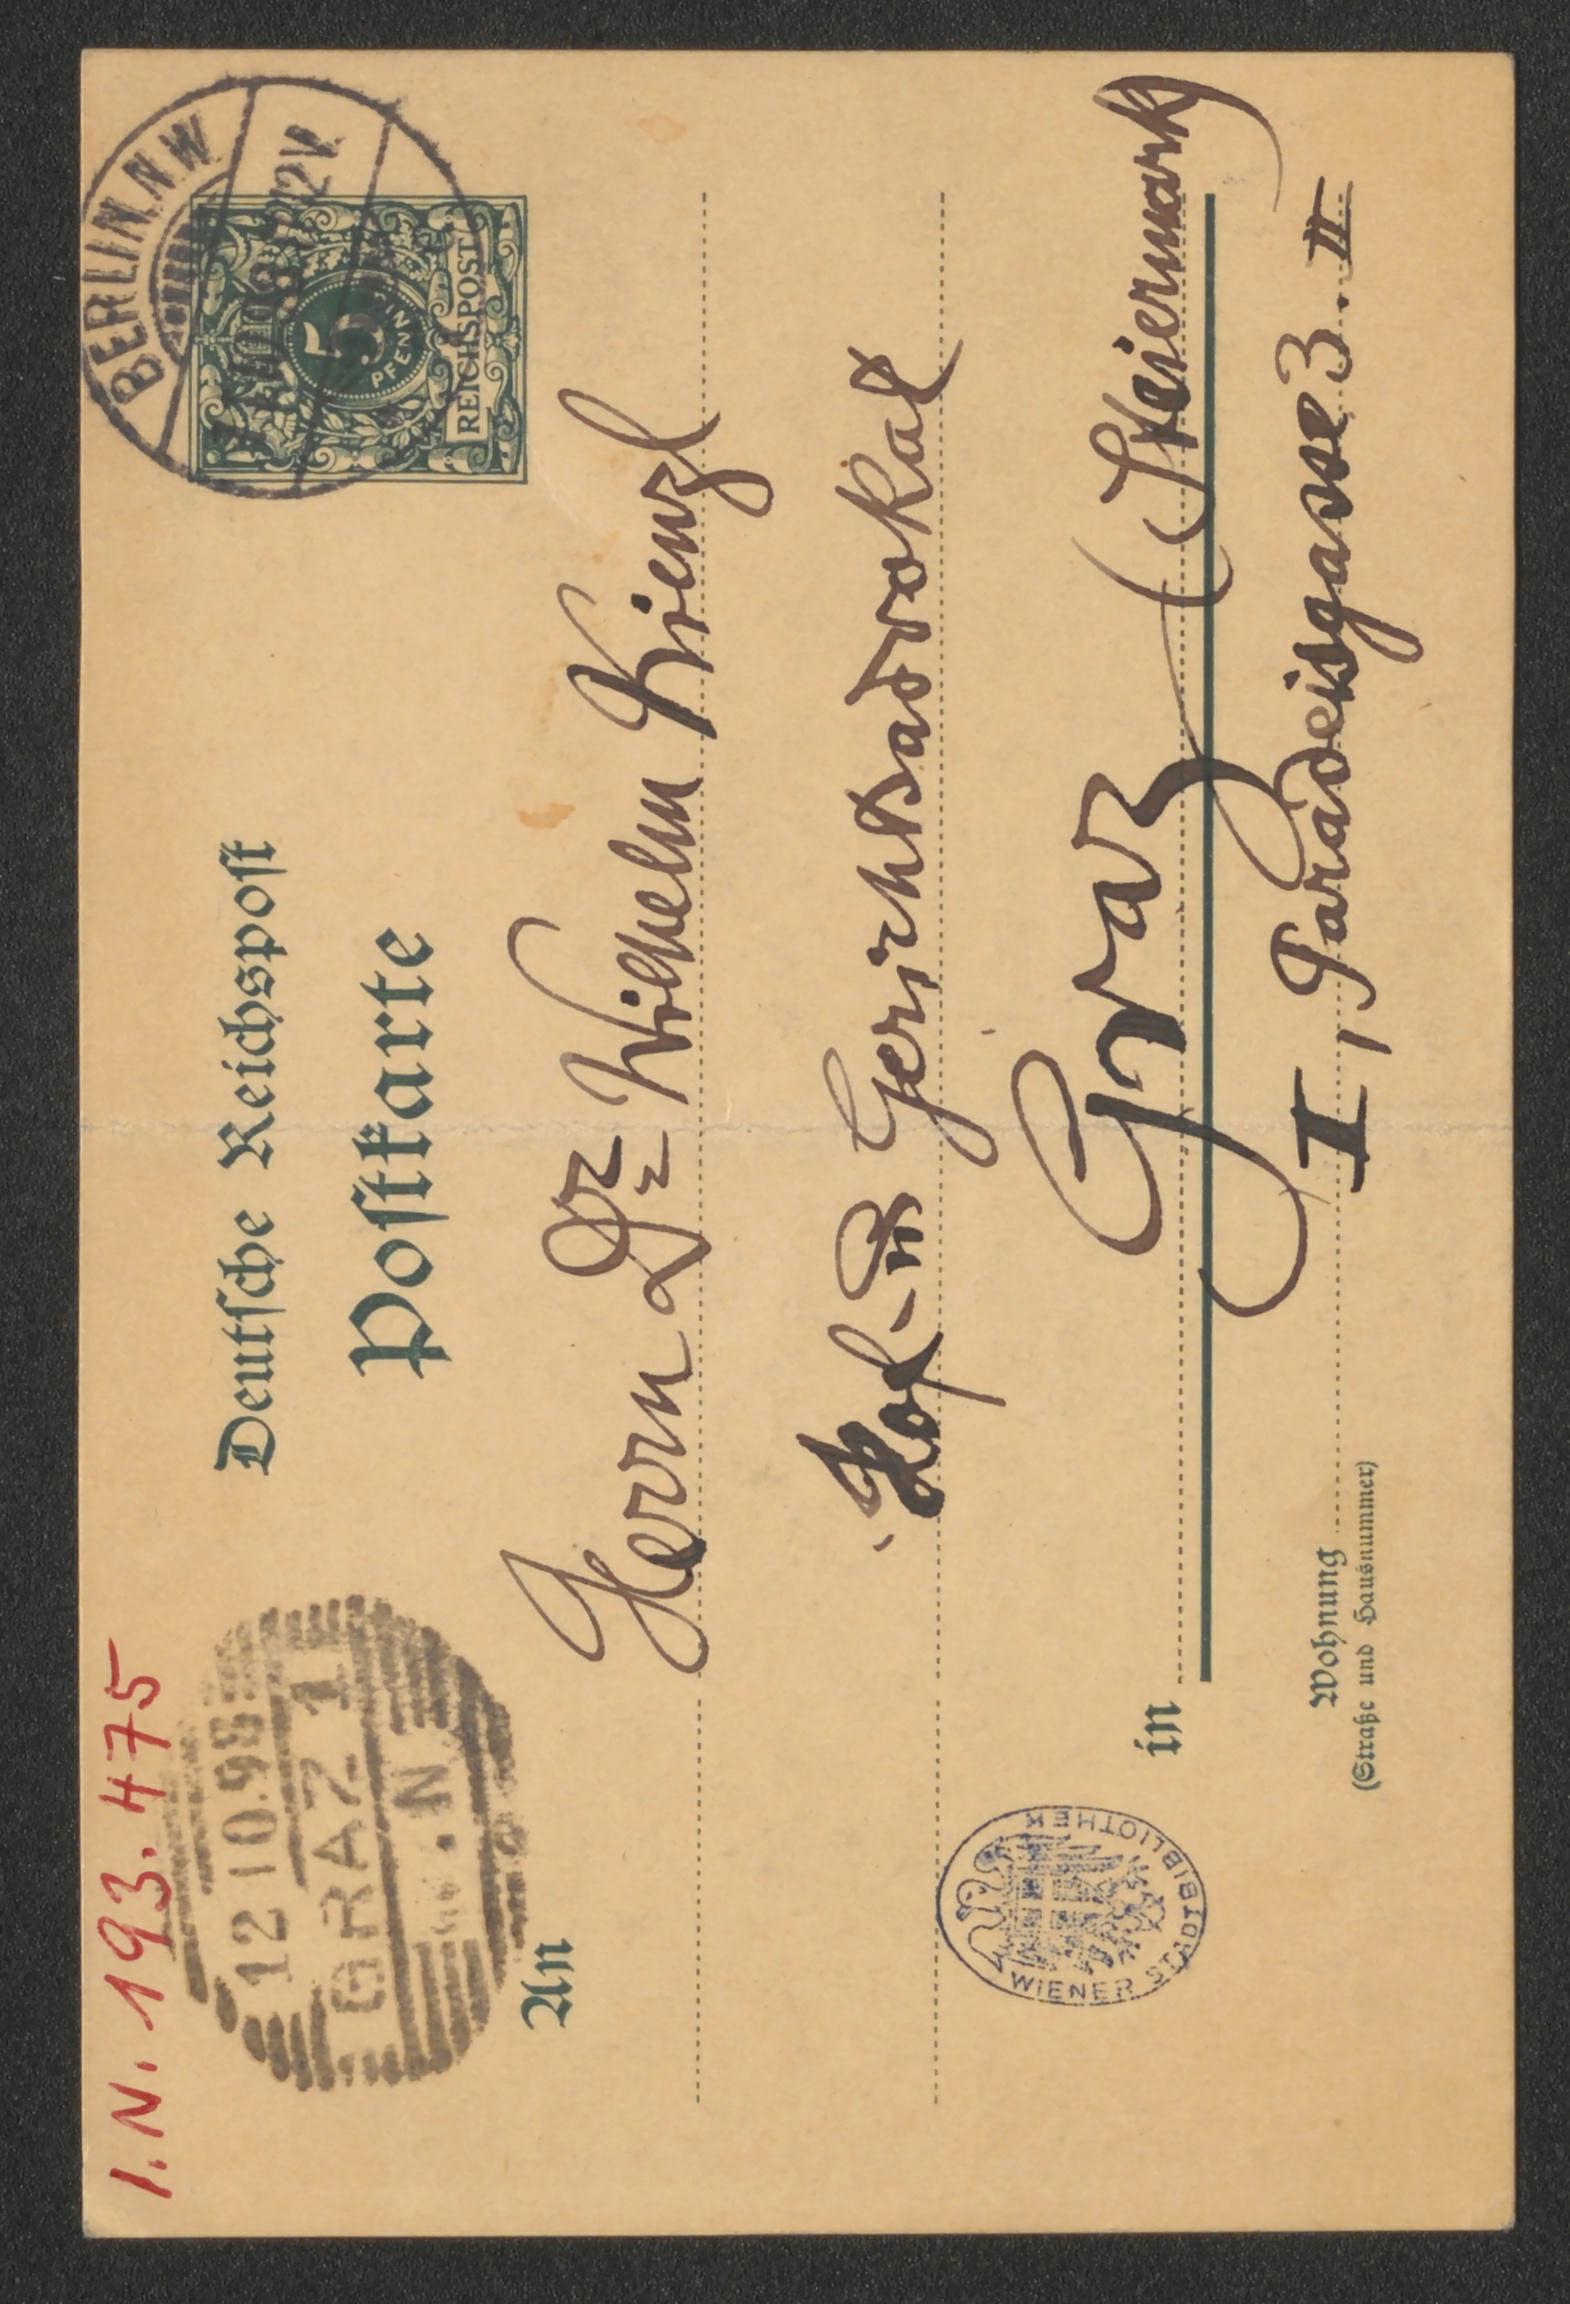 I.N. 193.475
Deutsche Reichspost
Postkarte
BERLIN.N.W
REICHSPOST
5
PFENNIG
12 10.98
GRAZ 1
An
Herrn Dr Wilhelm Kienzl
Hof- u Gerichtsadvokat
in Graz (Steiermark)
Wohnung I, Paradeisgasse 3. II
(Straße und Hausnummer)
WIENER STADTBIBLIOTHEK